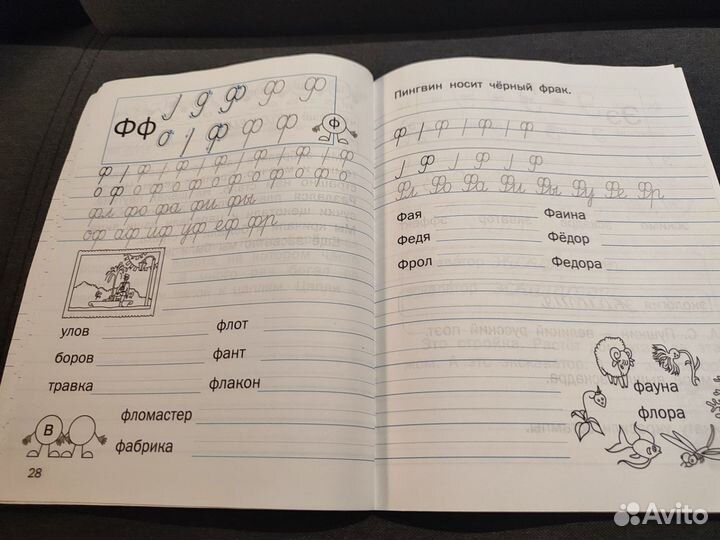 Фф
ф ф ф
о ф ф ф
Ф
ф ф ф ф ф ф
о ф о ф о ф о ф о ф о ф о ф о
фл фо фа фи фы
оф аф иф уф еф фр
улов флот
боров фант
травка флакон
фломастер
В
фабрика
28
Пингвин носит чёрный фрак.
ф ф ф ф
Ф Ф Ф
Фл Фо Фа Фи Фы Фу Фе Фр
Фая Фаина
Федя Фёдор
Фрол Федора
фауна
флора
Avito